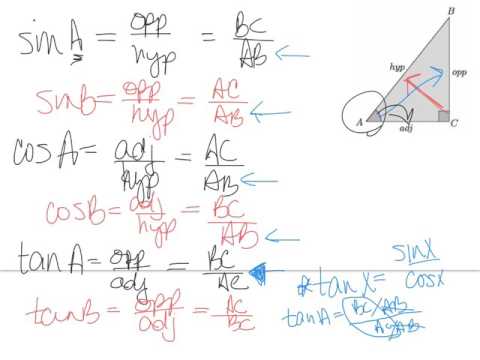 sin A = opp/hyp = BC/AB
sin B = opp/hyp = AC/AB
cos A = adj/hyp = AC/AB
cos B = adj/hyp = BC/AB
tan A = opp/adj = BC/AC
tan B = opp/adj = AC/BC
B
hyp
opp
A
adj
C
* tan x = sin x/cos x
tan A = BC/AB / AC/AB